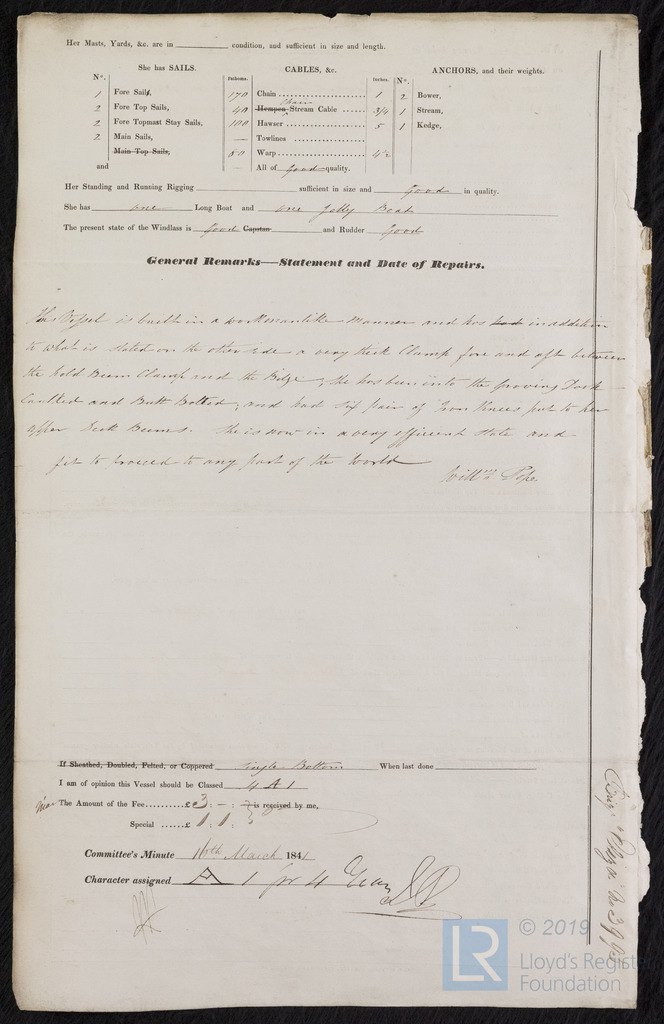 Her Masts, Yards, &c. are in ________ condition, and sufficient in size and length.
She has SAILS.
N°.
1 Fore Sails,
2 Fore Top Sails,
2 Fore Topmast Stay Sails,
2 Main Sails,
Main Top Sails,
and
CABLES, &c.
Fathoms. Inches.
170 Chain 1
40 Hempen Chain Stream Cable 3/4
100 Hawser 5
— Towlines —
80 Warp 4½
All of good quality.
ANCHORS, and their weights.
N°.
2 Bower,
1 Stream,
1 Kedge,
Her Standing and Running Rigging ________ sufficient in size and good in quality.
She has one Long Boat and one Jolly Boat
The present state of the Windlass is Good Capstan and Rudder Good
General Remarks—Statement and Date of Repairs.
This Vessel is built in a workmanlike manner and has had in addition
to what is stated on the other side a very thick Clamp fore and aft between
the hold Beam Clamp and the Bilge, She has been into the graving Dock
Caulked and Butt Bolted, and had six pair of Iron Knees put to her
upper Deck Beams. She is now in a very efficient state and
fit to proceed to any part of the World
Willm Pope
If Sheathed, Doubled, Felted, or Coppered Single Bottom When last done
I am of opinion this Vessel should be Classed 4 A 1
The Amount of the Fee £3 : – : is received by me,
Special £1 : 1 :
Committee's Minute 16th March 1841
Character assigned A 1 for 4 Years
© 2019
LR
Lloyd's Register
Foundation